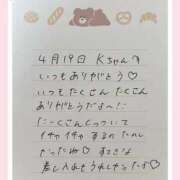 4月19日 Kちゃん
いつもありがとう♡
いつもたくさんたくさん
ありがとうだよ〜!
たーくさんくっついて
イチャイチャするのたのし
かったね♡ すてきな
差し入れもうれしかったよ♡